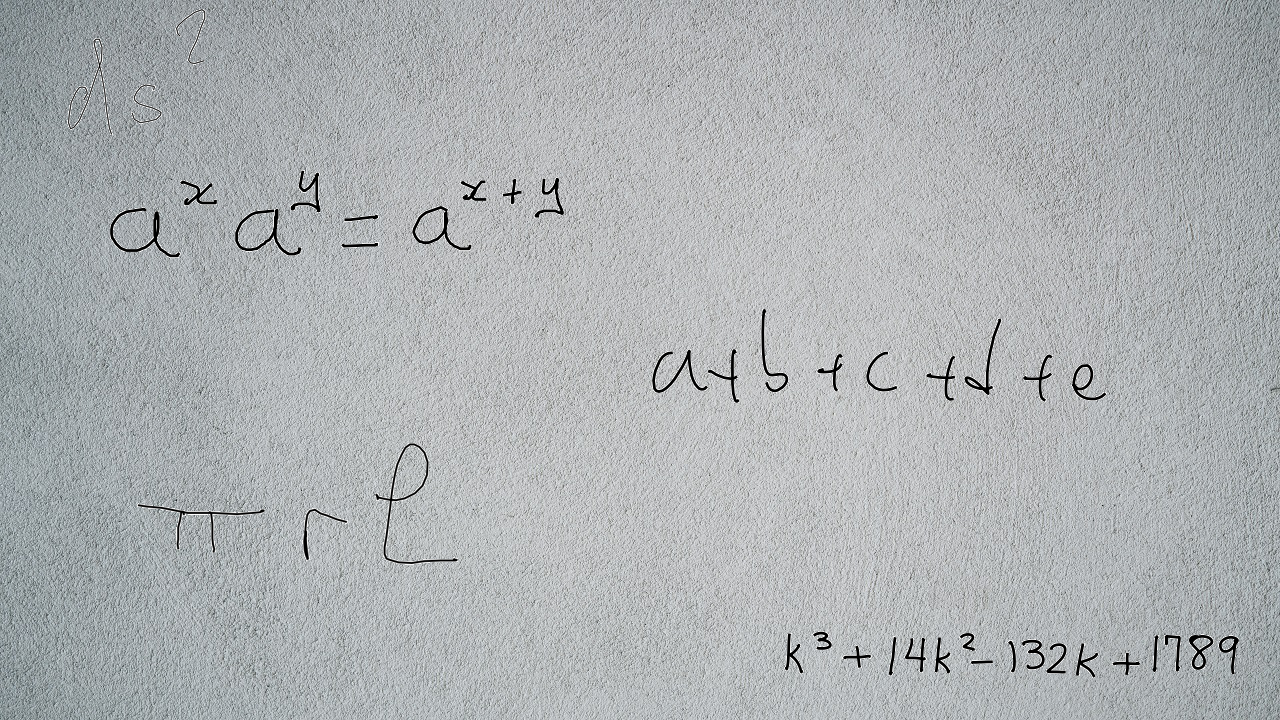 ds²
aˣ aʸ = aˣ⁺ʸ
a+b+c+d+e
πrℓ
k³+14k²-132k+1789